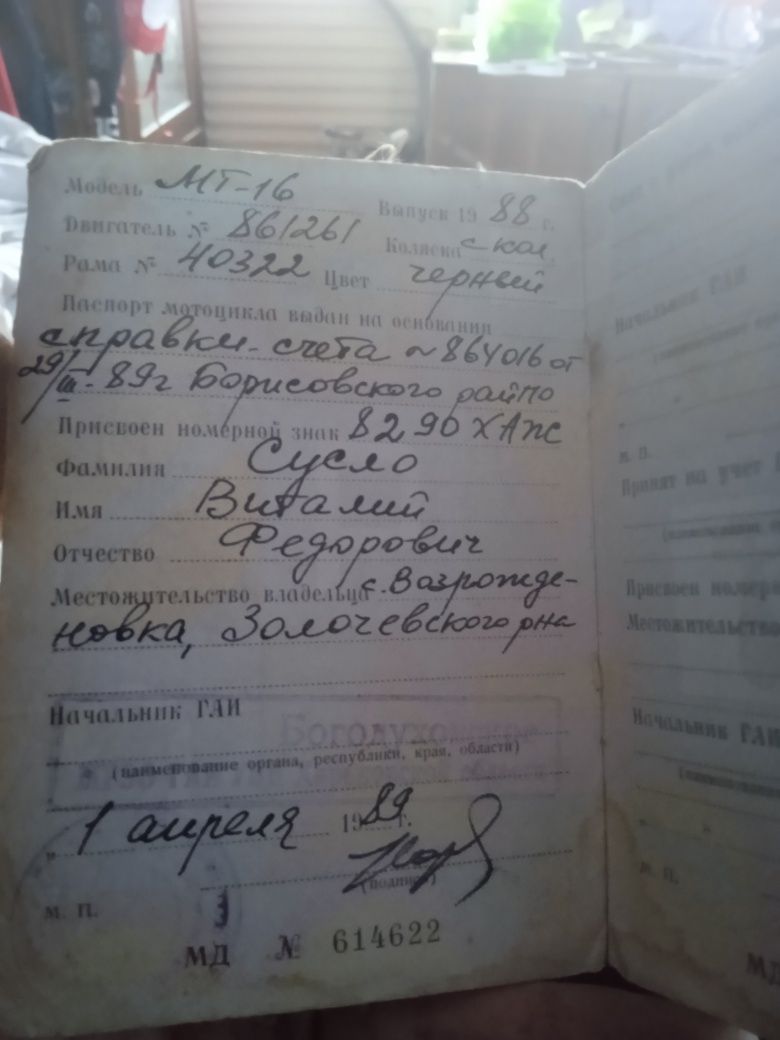 Модель МТ-16 Выпуск 19 88 г.
Двигатель № 861261 Коляска с кол.
Рама № 40322 Цвет черный
Паспорт мотоцикла выдан на основании
справки-счета № 864016 от
29/III-89г Борисовского райпо
Присвоен номерной знак 8290 ХАЖ
Фамилия Сусло
Имя Виталий
Отчество Федорович
Местожительство владельца с. Возрожде-
новка, Золочевского р-на
Начальник ГАИ
Богодуховское
(наименование органа, республики, края, области)
„ 1 апреля 1989 г.
(подпись)
м. п.
МД № 614622
Начальник ГАИ
м. п.
Принят на учет
Присвоен номерн
Местожительство
Начальник ГАИ
м. п.
МД